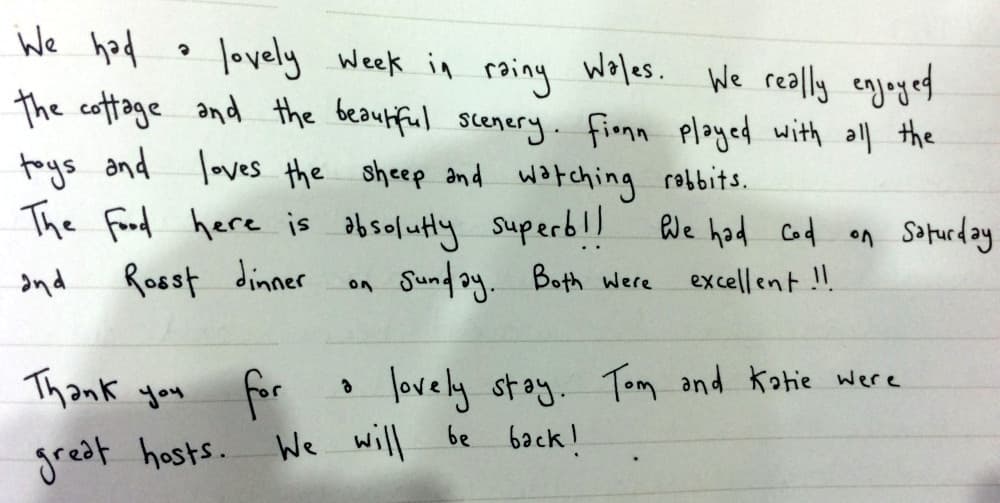 We had a lovely week in rainy Wales. We really enjoyed
the cottage and the beautiful scenery. Fionn played with all the
toys and loves the sheep and watching rabbits.
The Food here is absolutly superb!! We had Cod on Saturday
and Roast dinner on Sunday. Both were excellent!!
Thank you for a lovely stay. Tom and Katie were
great hosts. We will be back!